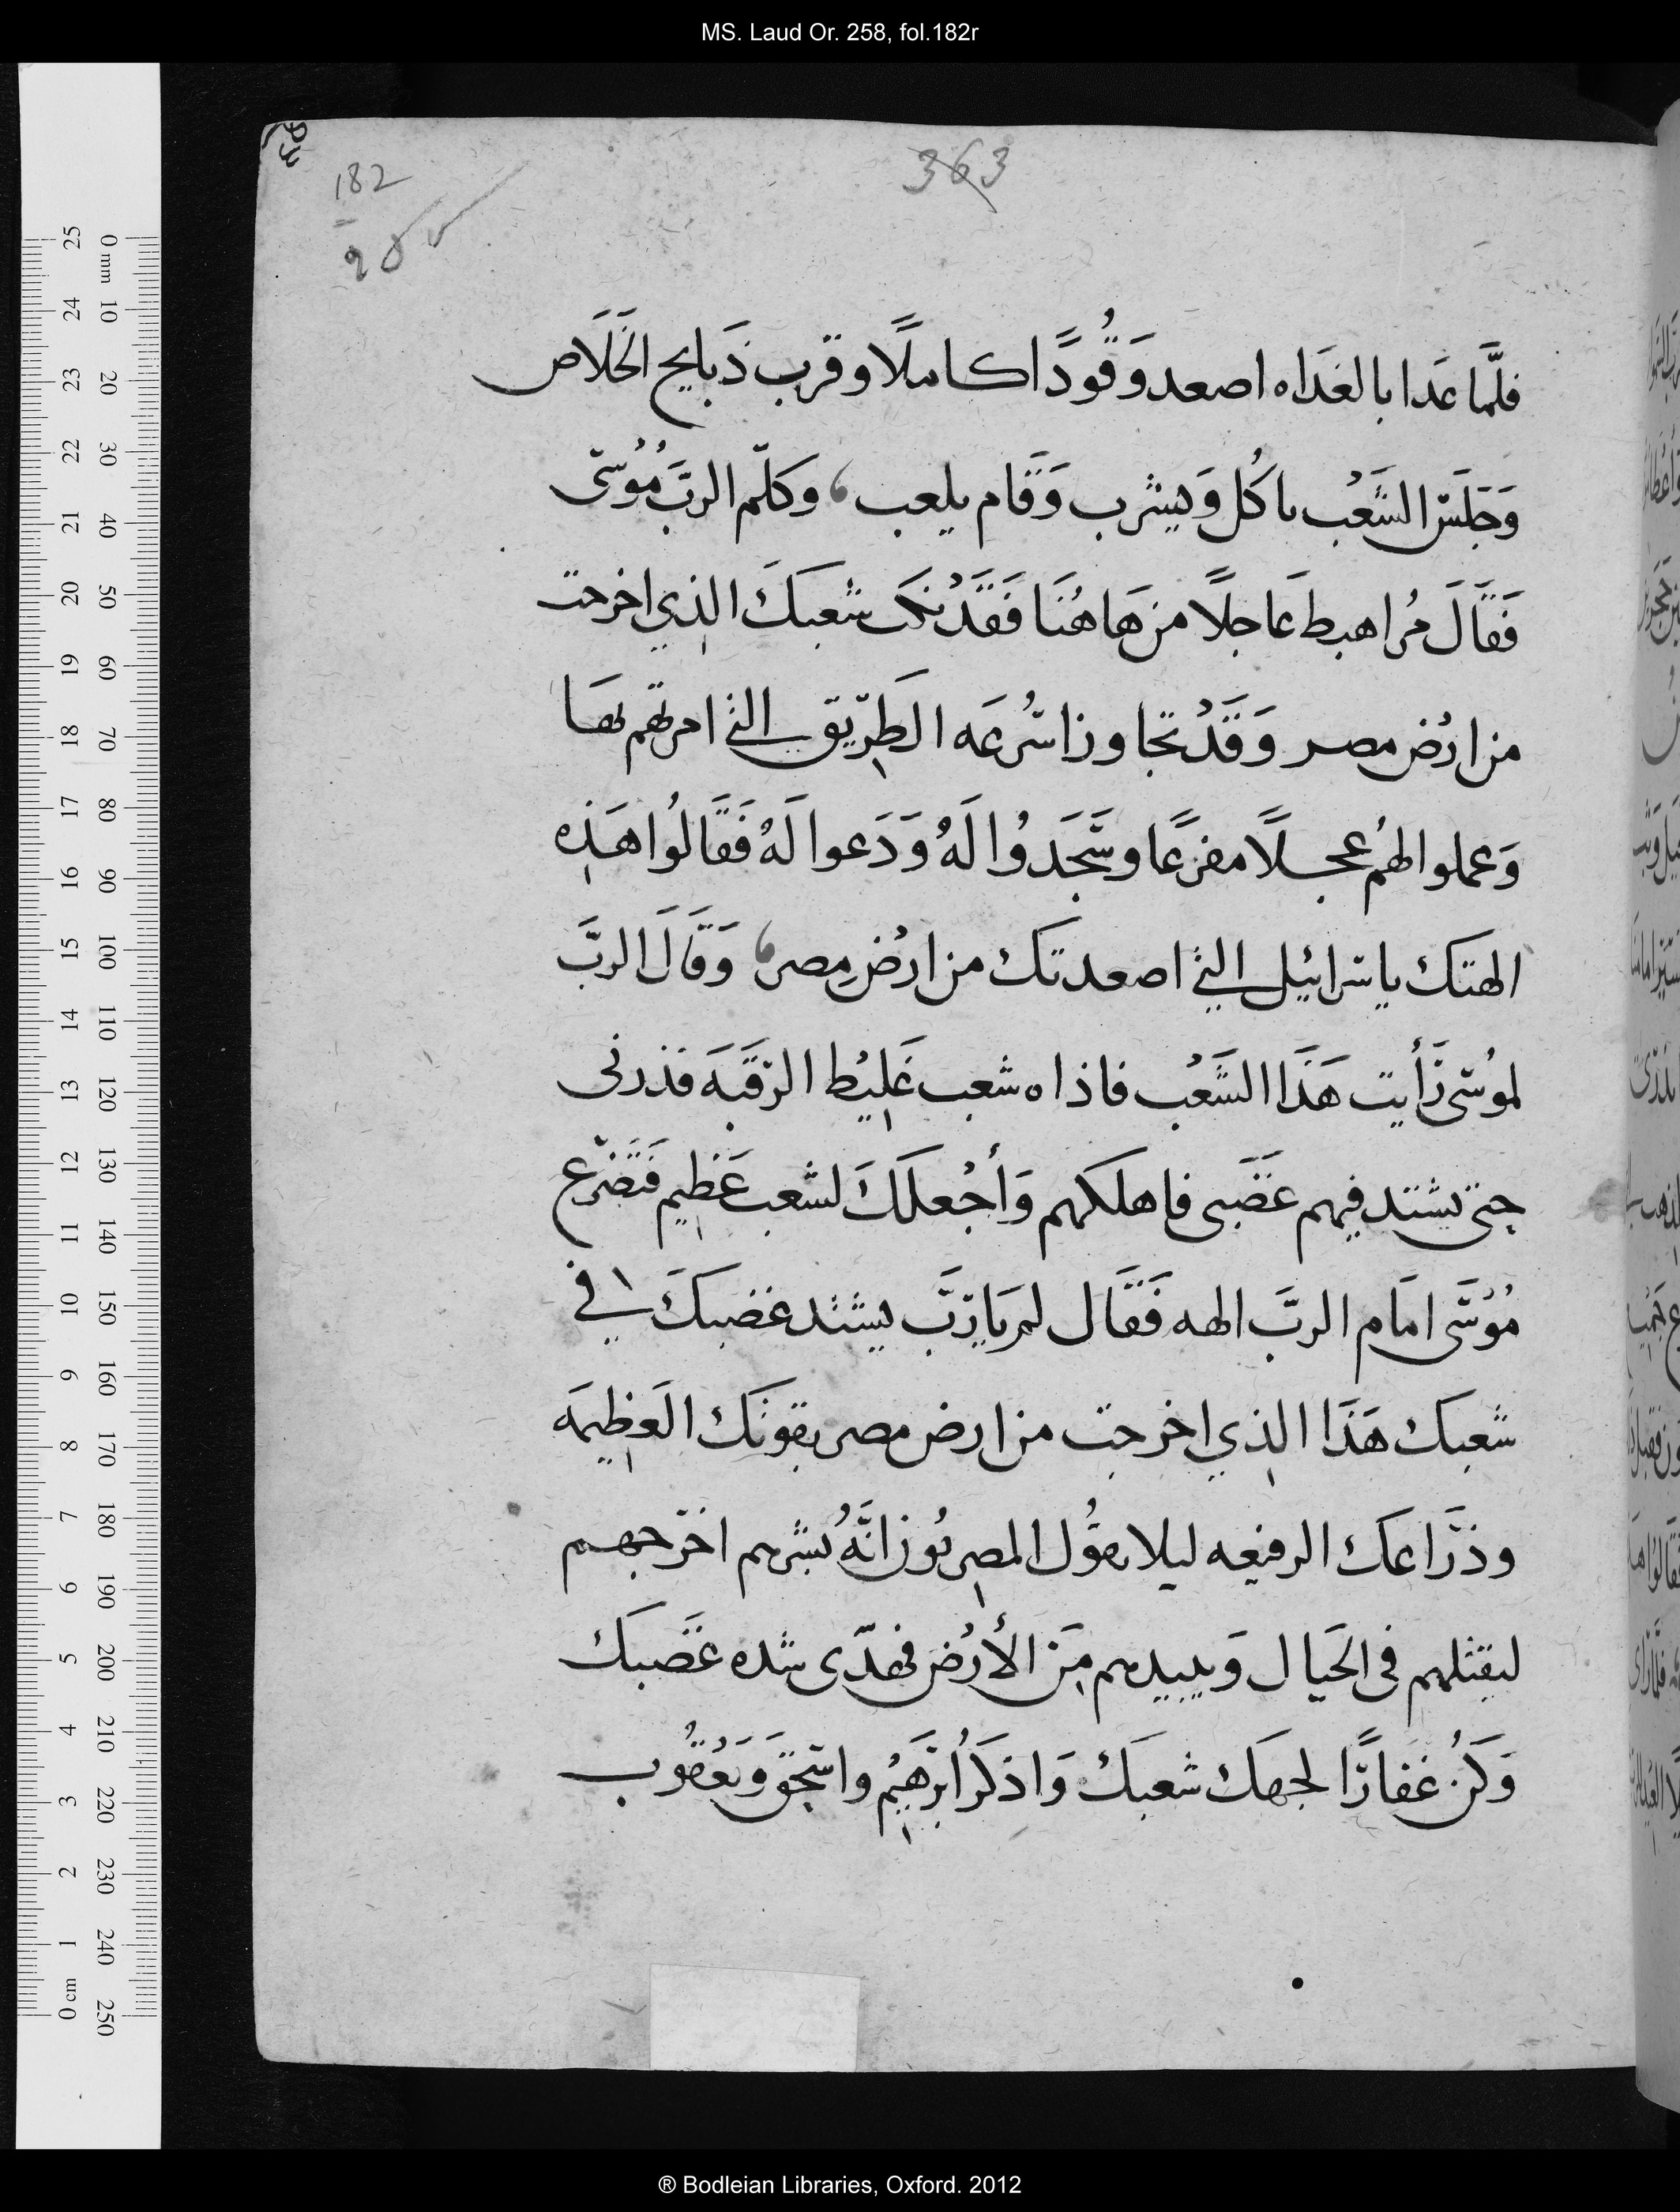 MS. Laud Or. 258, fol.182r
363
182
فلَّما غدا بالغَدَاه اصعد وَقُودًا كاملًا وقرب ذَبايح الخَلَاص
وَجَلَسَ الشَّعْب ياكُل وَيشرب وَقَام يلعب، وكلّم الربَّ مُوُسَى
فَقَالَ مُر اهبط عَاجلًا من هَاهُنَا فَقَدْ نكث شعبكَ الذي اخرجت
من ارْض مصر وَقَدْ تجاوز اسْرعَه الطَريق التي امرتهم بهَا
وَعملوا لهُم عجلًا مفرغًا وسَجَدوُا لَهُ وَدَعوا لَهُ فَقَالُوا هَذِه
الهتك ياسرائيل التي اصعدتك من ارْضِ مِصر، وَقَالَ الربَّ
لموُسَى رَأَيت هَذَا الشَّعْب فاذاه شعب غَليْط الرَّقَبَه فذرنى
حتى يشتد فيهم غَضَبى فاهلكهم وَأجْعلكَ لشعب عَظيم فَتَضَرَّع
مُوُسَى امَام الربَّ الهه فَقَال لم يَا رَبَّ يشتد غضبكَ في
شعبك هَذَا الذي اخرجت من ارض مصر بقوتك العَظِيمَه
وذرَاعك الرفيعه ليلا يقوُل المصريُون انَّهُ بشرهم اخرَجهم
ليقتلهم فى الجَبال وَيبيدهم مِن الأرْض فهدّى شده غَضبكَ
وَكُن غَفارًا لجهك شعبكَ وَاذكرَ ابْرهَيْم واسحَق وَيَعْقُوب
0 mm 10 20 30 40 50 60 70 80 90 100 110 120 130 140 150 160 170 180 190 200 210 220 230 240 250
25 24 23 22 21 20 19 18 17 16 15 14 13 12 11 10 9 8 7 6 5 4 3 2 1 0 cm
® Bodleian Libraries, Oxford. 2012